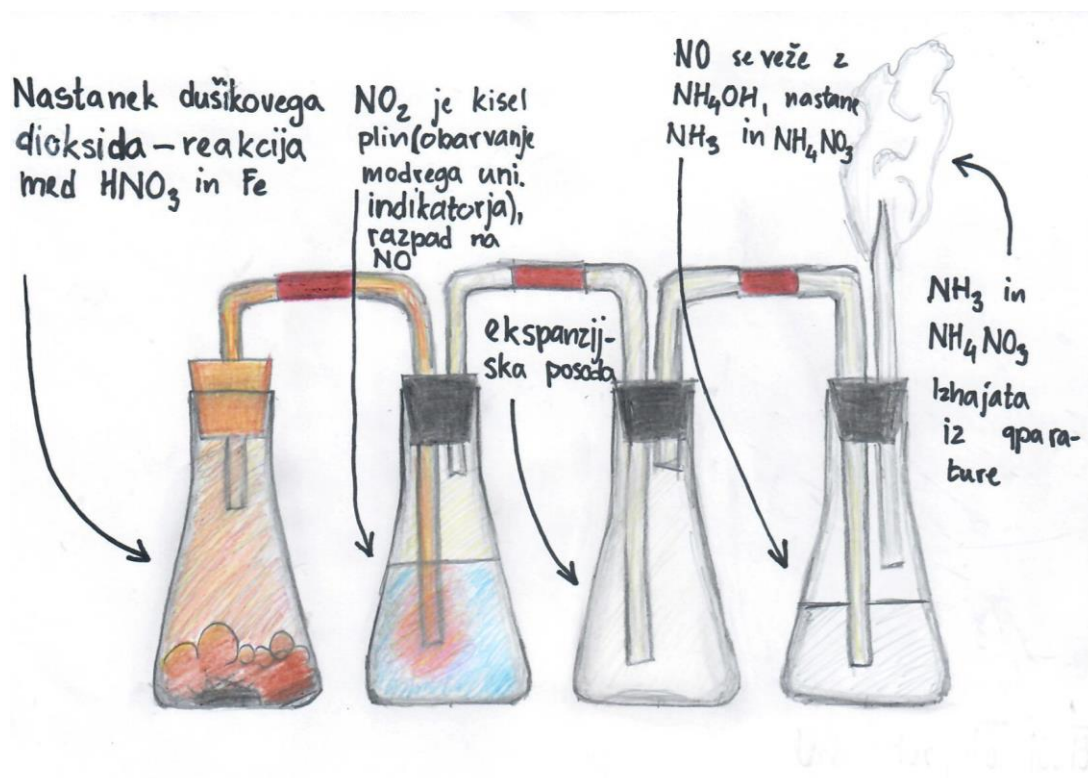 Nastanek dušikovega
dioksida – reakcija
med HNO₃ in Fe
NO₂ je kisel
plin (obarvanje
modrega uni.
indikatorja),
razpad na
NO
ekspanzij-
ska posoda
NO se veže z
NH₄OH, nastane
NH₃ in NH₄NO₃
NH₃ in
NH₄NO₃
Izhajata
iz apara-
ture